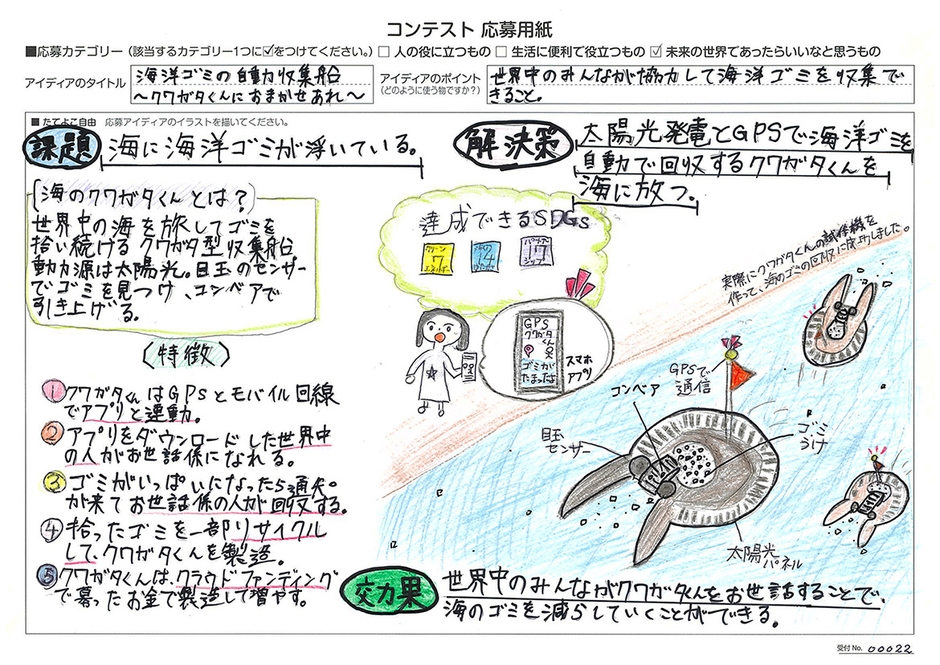 コンテスト 応募用紙
■応募カテゴリー（該当するカテゴリー1つに☑をつけてください。）□ 人の役に立つもの □ 生活に便利で役立つもの ☑ 未来の世界であったらいいなと思うもの
アイディアのタイトル
海洋ゴミの自動収集船
～クワガタくんにおまかせあれ～
アイディアのポイント
（どのように使う物ですか？）
世界中のみんなが協力して海洋ゴミを収集で
きること。
■ たてよこ自由 応募アイディアのイラストを描いてください。
課題
海に海洋ゴミが浮いている。
解決策
太陽光発電とGPSで海洋ゴミを
自動で回収するクワガタくんを
海に放つ。
〔海のクワガタくんとは？〕
世界中の海を旅してゴミを
拾い続けるクワガタ型収集船
動力源は太陽光。目玉のセンサー
でゴミを見つけ、コンベアで
引き上げる。
達成できるSDGs
7
14
17
実際にクワガタくんの試作機を
作って、海のゴミの回収に成功しました。
〔特徴〕
①クワガタくんはGPSとモバイル回線
でアプリと連動。
②アプリをダウンロードした世界中
の人がお世話係になれる。
③ゴミがいっぱいになったら通知
が来てお世話係の人が回収する。
④拾ったゴミを一部リサイクル
して、クワガタくんを製造。
⑤クワガタくんは、クラウドファンディング
で募ったお金で製造して増やす。
GPS
クワガタ
くんOK
ゴミが
たまったよ
スマホ
アプリ
GPSで
通信
コンベア
目玉
センサー
ゴミ
うけ
太陽光
パネル
効果
世界中のみんながクワガタくんをお世話することで、
海のゴミを減らしていくことができる。
受付 No. 00022